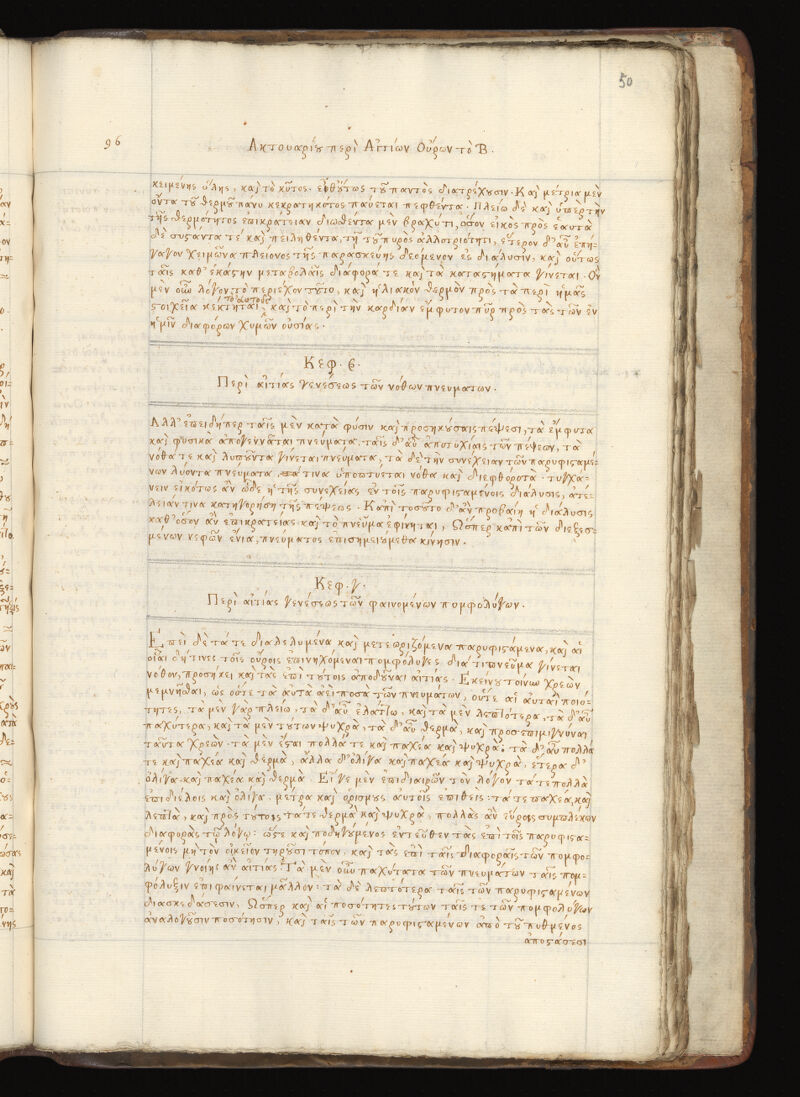 50
96
Ακτουαρίου περὶ Αἰτίων Οὔρων τὸ Β.
κειμένης ὕλης, καὶ τὸ κῦτος εὐθύτως τοῦ παντὸς διατρέχουσιν. Καὶ μέτρια μὲν
ὄντα τοῦ θερμοῦ πάνυ κεκρατηκότος παύεται πεφθέντα. Πλείω δὲ καὶ ὑπὲρ τὴν
τῆς θερμότητος ἐπικράτειαν διωθέντα μὲν βραχύ τι, ὅσον εἰκὸς πρὸς ἑαυτὰ
δὲ συστάντα τὲ καὶ πειληθέντα, τῇ τοῦ πυρὸς ἀλλοτριότητι, ἕτερον δ' αὖ ἐπή-
γαγον χειμῶνα πλείονος τῆς παρασκευῆς δεόμενον ἐς διάλυσιν, καὶ οὕτως
ταῖς καθ' ἑκάστην μεταβολαῖς διάφορά τε καὶ τὰ καταστήματα γίνεται. Ὃν
μὲν οὖν λόγον τὸ περιέχον τοῦτο, καὶ ἡλιακὸν θερμὸν πρὸς τὰ περὶ ἡμᾶς
στοιχεῖα κέκτηται τὸ αὐτὸ καὶ τὸ περὶ τὴν καρδίαν ἔμφυτον πῦρ πρὸς τὰς τῶν ἐν
ἡμῖν διαφόρων χυμῶν οὐσίας.
Κεφ. ϛ.
Περὶ αἰτίας γενέσεως τῶν νόθων πνευμάτων.
Ἀλλ' ἐπειδήπερ ταῖς μὲν κατὰ φύσιν καὶ προσηκούσαις πέψεσι, τὰ ἔμφυτα
καὶ φυσικὰ ἀπογεννᾶται πνεύματα, ταῖς δ' αὖ ἀποτυχίαις τῶν πέψεων, τὰ
νόθα τε καὶ λυποῦντα γίνεται πνεύματα, τὰ δὲ τὴν συνέχειαν τῶν παρυφισταμέ-
νων λύοντα πνεύματα, τινα ὑποπτεύεται νόθα καὶ διεφθορότα. τυγχά-
νειν εἰκότως ἂν ὧδε ἡ τῆς συνεχείας ἐν τοῖς παρυφισταμένοις διάλυσις, ἀτέ-
λειάν τινα κατηγορήση τῆς πέψεως. Κἀπὶ τοσοῦτο δ' ἂν προβαίη ἡ διάλυσις
καθ' ὅσον ἂν ἐπικρατείας καὶ τὸ πνεῦμα ἐφίκηται, Ὥσπερ κἀπὶ τῶν διεξεσ-
μένων νεφῶν ἔνια, πνεύματος ἐπισημειούμεθα κίνησιν.
Κεφ. γ.
Περὶ αἰτίας γενέσεως τῶν φαινομένων πομφολύγων.
Ἐπεὶ δὲ τά τε διαλελυμένα καὶ μετεωριζόμενα παρυφιστάμενα, καὶ αἱ
οἷαι δήτινες τοῖς οὔροις ἐπινηχόμεναι πομφόλυγες, διά τι πνεῦμα γίνεται
νόθον, προσήκει καὶ τὰς ἐπὶ τούτοις ἀποδοῦναι αἰτίας. Ἐκείνου τοίνυν χρεὼν
μεμνῆσθαι, ὡς οὔτε τὰ αὐτὰ ἀεὶ ποσὰ τῶν πνευμάτων, οὔτε αἱ αὐταὶ ποιό-
τητες, τὰ μὲν γὰρ πλείω, τὰ δ' αὖ ἐλάττω, καὶ τὰ μὲν λεπτότερα, τὰ δ' αὖ
παχύτερα, καὶ τὰ μὲν τούτων ψυχρὰ, τὰ δ' αὖ θερμὰ, καὶ προσεπιμιγνύναι
ταῦτα χρεών. τὰ μὲν ἔσται πολλά τε καὶ παχέα καὶ ψυχρά, τὰ δ' αὖ πολλά
τε καὶ παχέα καὶ θερμὰ, ἄλλα δ' ὀλίγα καὶ παχέα καὶ ψυχρὰ, ἕτερα δ'
ὀλίγα καὶ παχέα καὶ θερμά. Εἴ γε μὲν ἐπιδιαιρῶν τὸν λόγον τά τε πολλὰ
ἐπιδιέλοις καὶ ὀλίγα, μέτρα καὶ ὁρισμοὺς αὐτοῖς ἐπιθείς: τά τε παχέα, καὶ
λεπτὰ, καὶ πρὸς τούτοις τά τε θερμὰ καὶ ψυχρά, πολλὰς ἂν εὕροις συμπλέκων
διαφορὰς τῷ λόγῳ: ὥστε καὶ ποδηγούμενος ἐντεῦθεν τὰς ἐπὶ τοῖς παρυφιστα-
μένοις μὴ τὸν οἰκεῖον τηροῦσι τόπον, καὶ τὰς ἐπὶ ταῖς διαφοραῖς τῶν πομφο-
λύγων γνοίης ἂν αἰτίας. Τὰ μὲν οὖν παχύτατα τῶν πνευμάτων ταῖς πομ-
φόλυξιν ἐπιφαίνεται μᾶλλον: τὰ δὲ λεπτότερα ταῖς τῶν παρυφισταμένων
διασκεδάσεσιν, Ὥσπερ καὶ αἱ ποσότητες τούτων ταῖς τε τῶν πομφολύγων
ἀναλογοῦσιν ποσότησιν, καὶ ταῖς τῶν παρυφισταμένων ἀπὸ τοῦ πυθμένος
ἀποστάσεσι